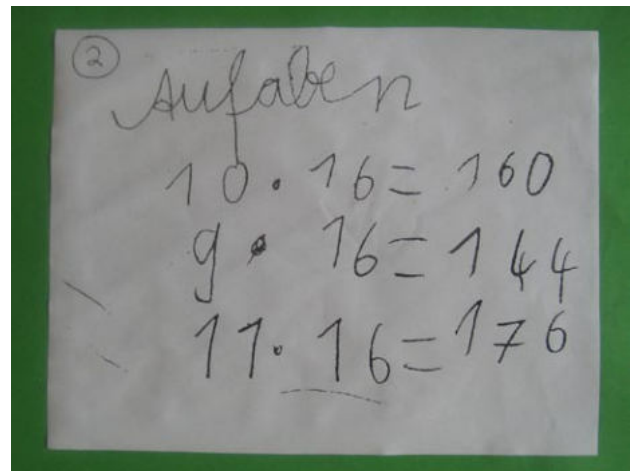 2
Aufaben
10 · 16 = 160
9 · 16 = 144
11 · 16 = 176